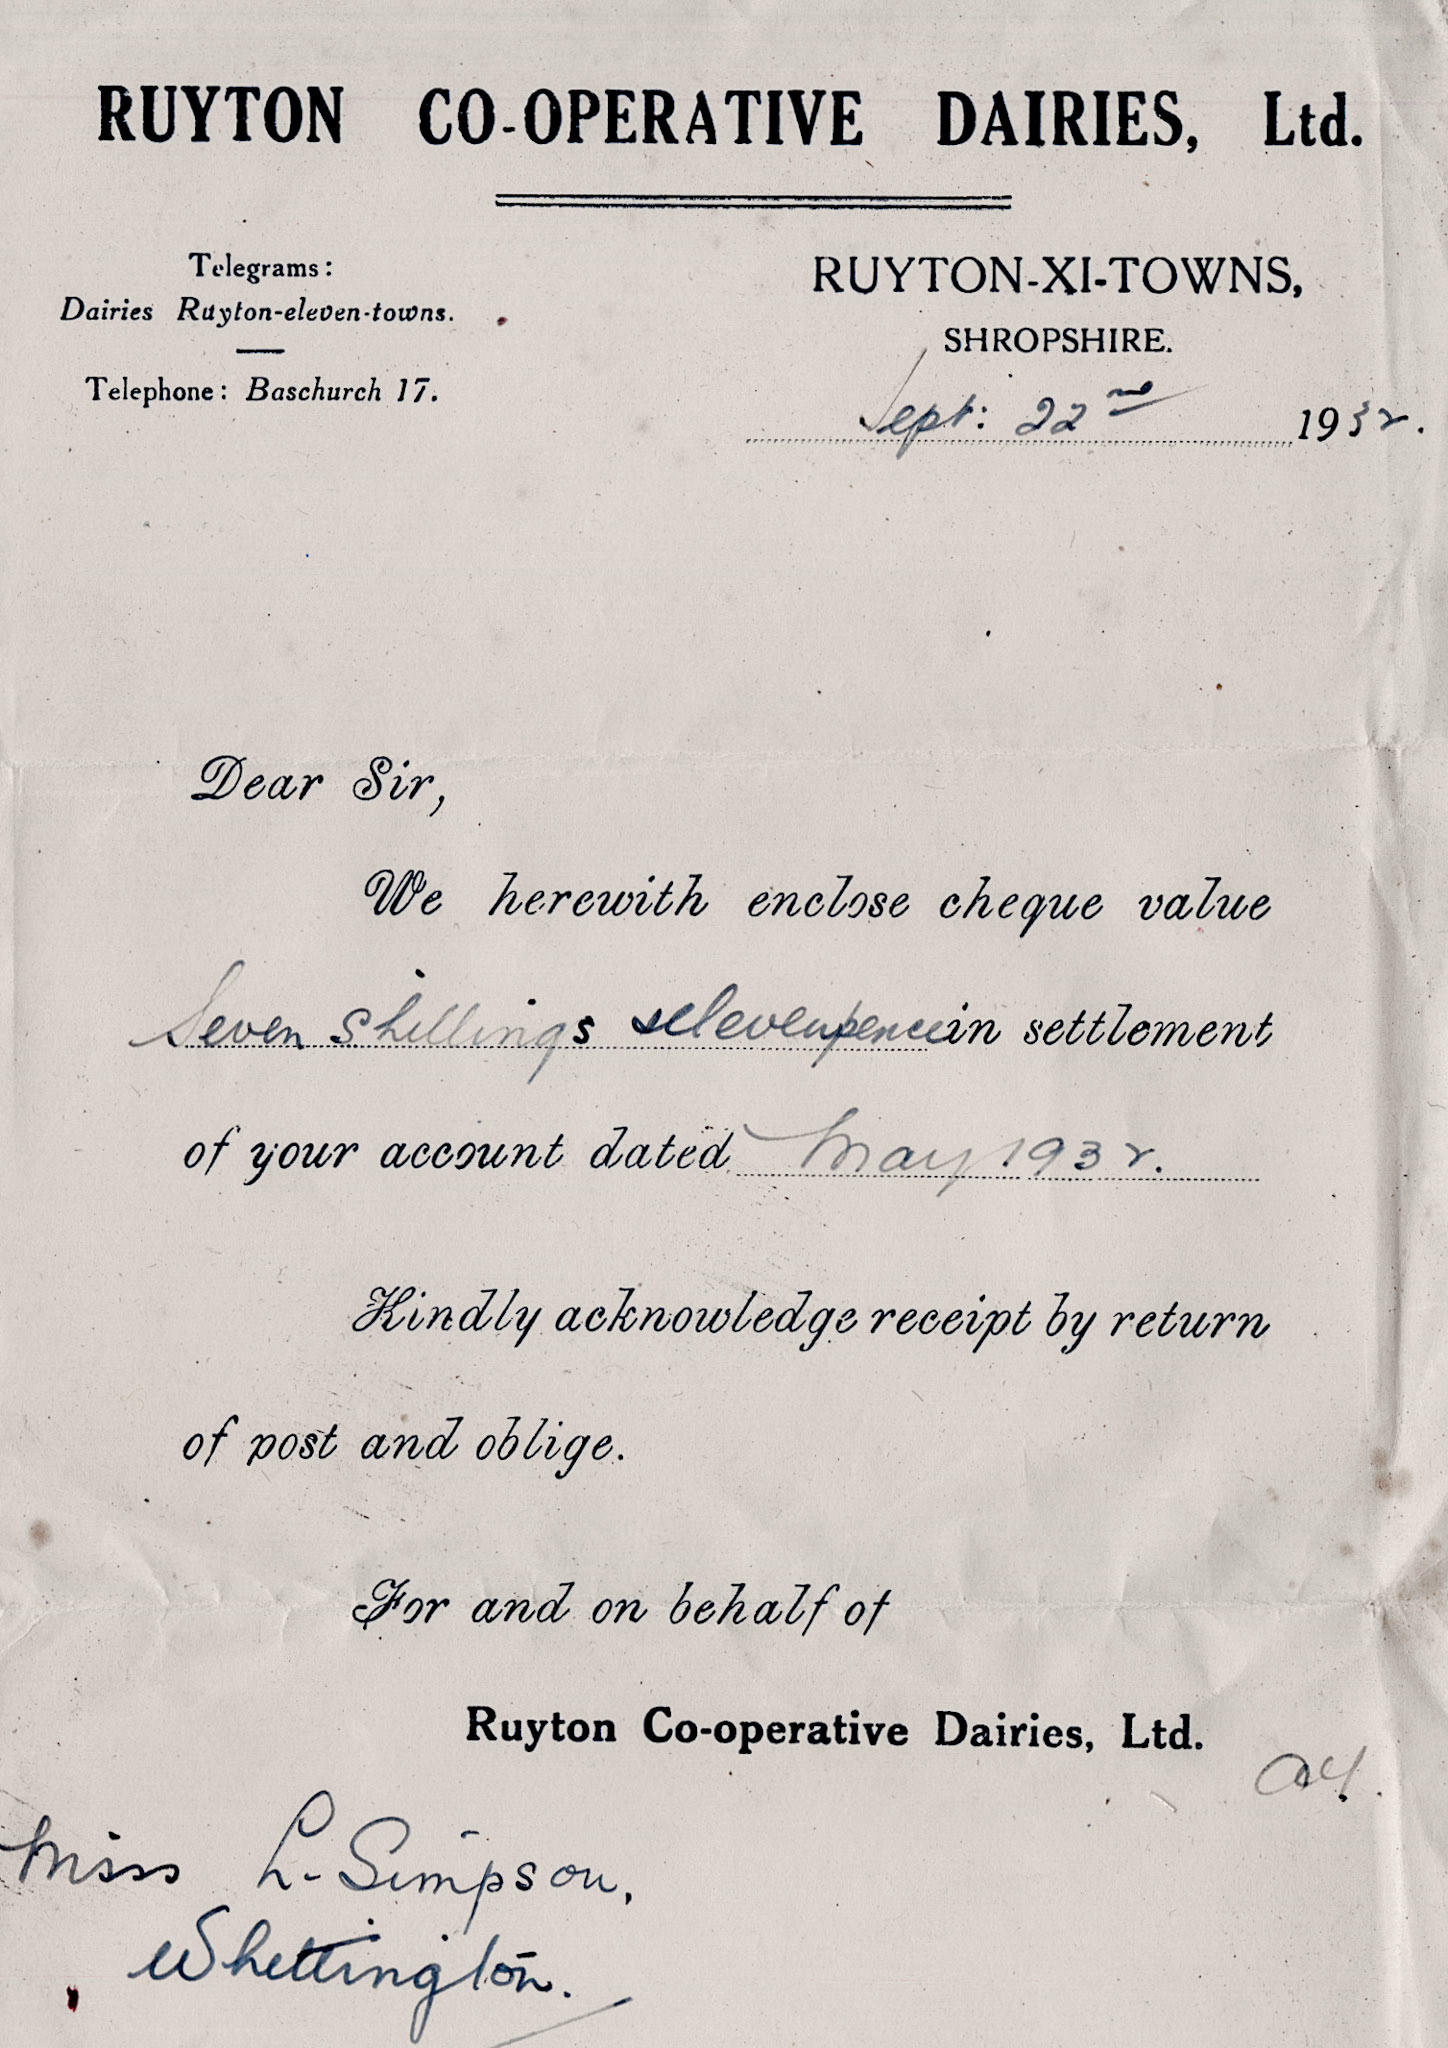 RUYTON CO-OPERATIVE DAIRIES, Ltd.
Telegrams:
Dairies Ruyton-eleven-towns.
Telephone: Baschurch 17.
RUYTON-XI-TOWNS,
SHROPSHIRE.
Sept: 22nd 1932.
Dear Sir,
We herewith enclose cheque value
Seven shillings & elevenpence in settlement
of your account dated May 1932.
Kindly acknowledge receipt by return
of post and oblige.
For and on behalf of
Ruyton Co-operative Dairies, Ltd.
Miss L. Simpson,
Whittington.